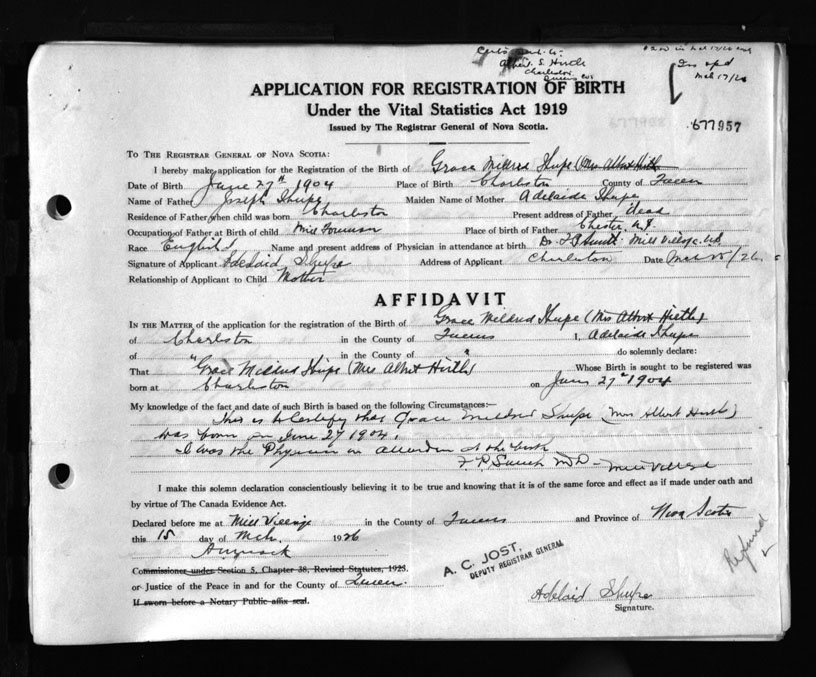 Albert S. Hirtle
Charleston
Queens
Mch 17/26
APPLICATION FOR REGISTRATION OF BIRTH
Under the Vital Statistics Act 1919
Issued by The Registrar General of Nova Scotia.
677957
To The Registrar General of Nova Scotia:
I hereby make application for the Registration of the Birth of Grace Mildred Shupe (Mrs Albert Hirtle
Date of Birth June 27th 1904 Place of Birth Charleston County of Queen
Name of Father Joseph Shupe Maiden Name of Mother Adelaide Shupe
Residence of Father when child was born Charleston Present address of Father dead
Occupation of Father at Birth of child Mill Foreman Place of birth of Father Chester N.S
Race English Name and present address of Physician in attendance at birth Dr F P Smith Mill Village N.S
Signature of Applicant Adelaid Shupe Address of Applicant Charleston Date Mar /26
Relationship of Applicant to Child Mother
AFFIDAVIT
In the Matter of the application for the registration of the Birth of Grace Mildred Shupe (Mrs Albert Hirtle)
of Charleston in the County of Queens I, Adelaide Shupe
of in the County of do solemnly declare:
That "Grace Mildred Shupe (Mrs Albert Hirtle) Whose Birth is sought to be registered was
born at Charleston on June 27th 1904
My knowledge of the fact and date of such Birth is based on the following Circumstances:—
This is to Certify that Grace Mildred Shupe (Mrs Albert Hirtle)
was born on June 27 1904.
I was the Physician in attendance at the birth
F. P. Smith M D - Mill Village
I make this solemn declaration conscientiously believing it to be true and knowing that it is of the same force and effect as if made under oath and
by virtue of The Canada Evidence Act.
Declared before me at Mill Village in the County of Queens and Province of Nova Scotia
this 15 day of Mch. 1926
Commissioner under Section 5, Chapter 38, Revised Statutes, 1923.
or Justice of the Peace in and for the County of Queen.
If sworn before a Notary Public affix seal.
A. C. JOST,
DEPUTY REGISTRAR GENERAL
Refund
Adelaid Shupe
Signature.